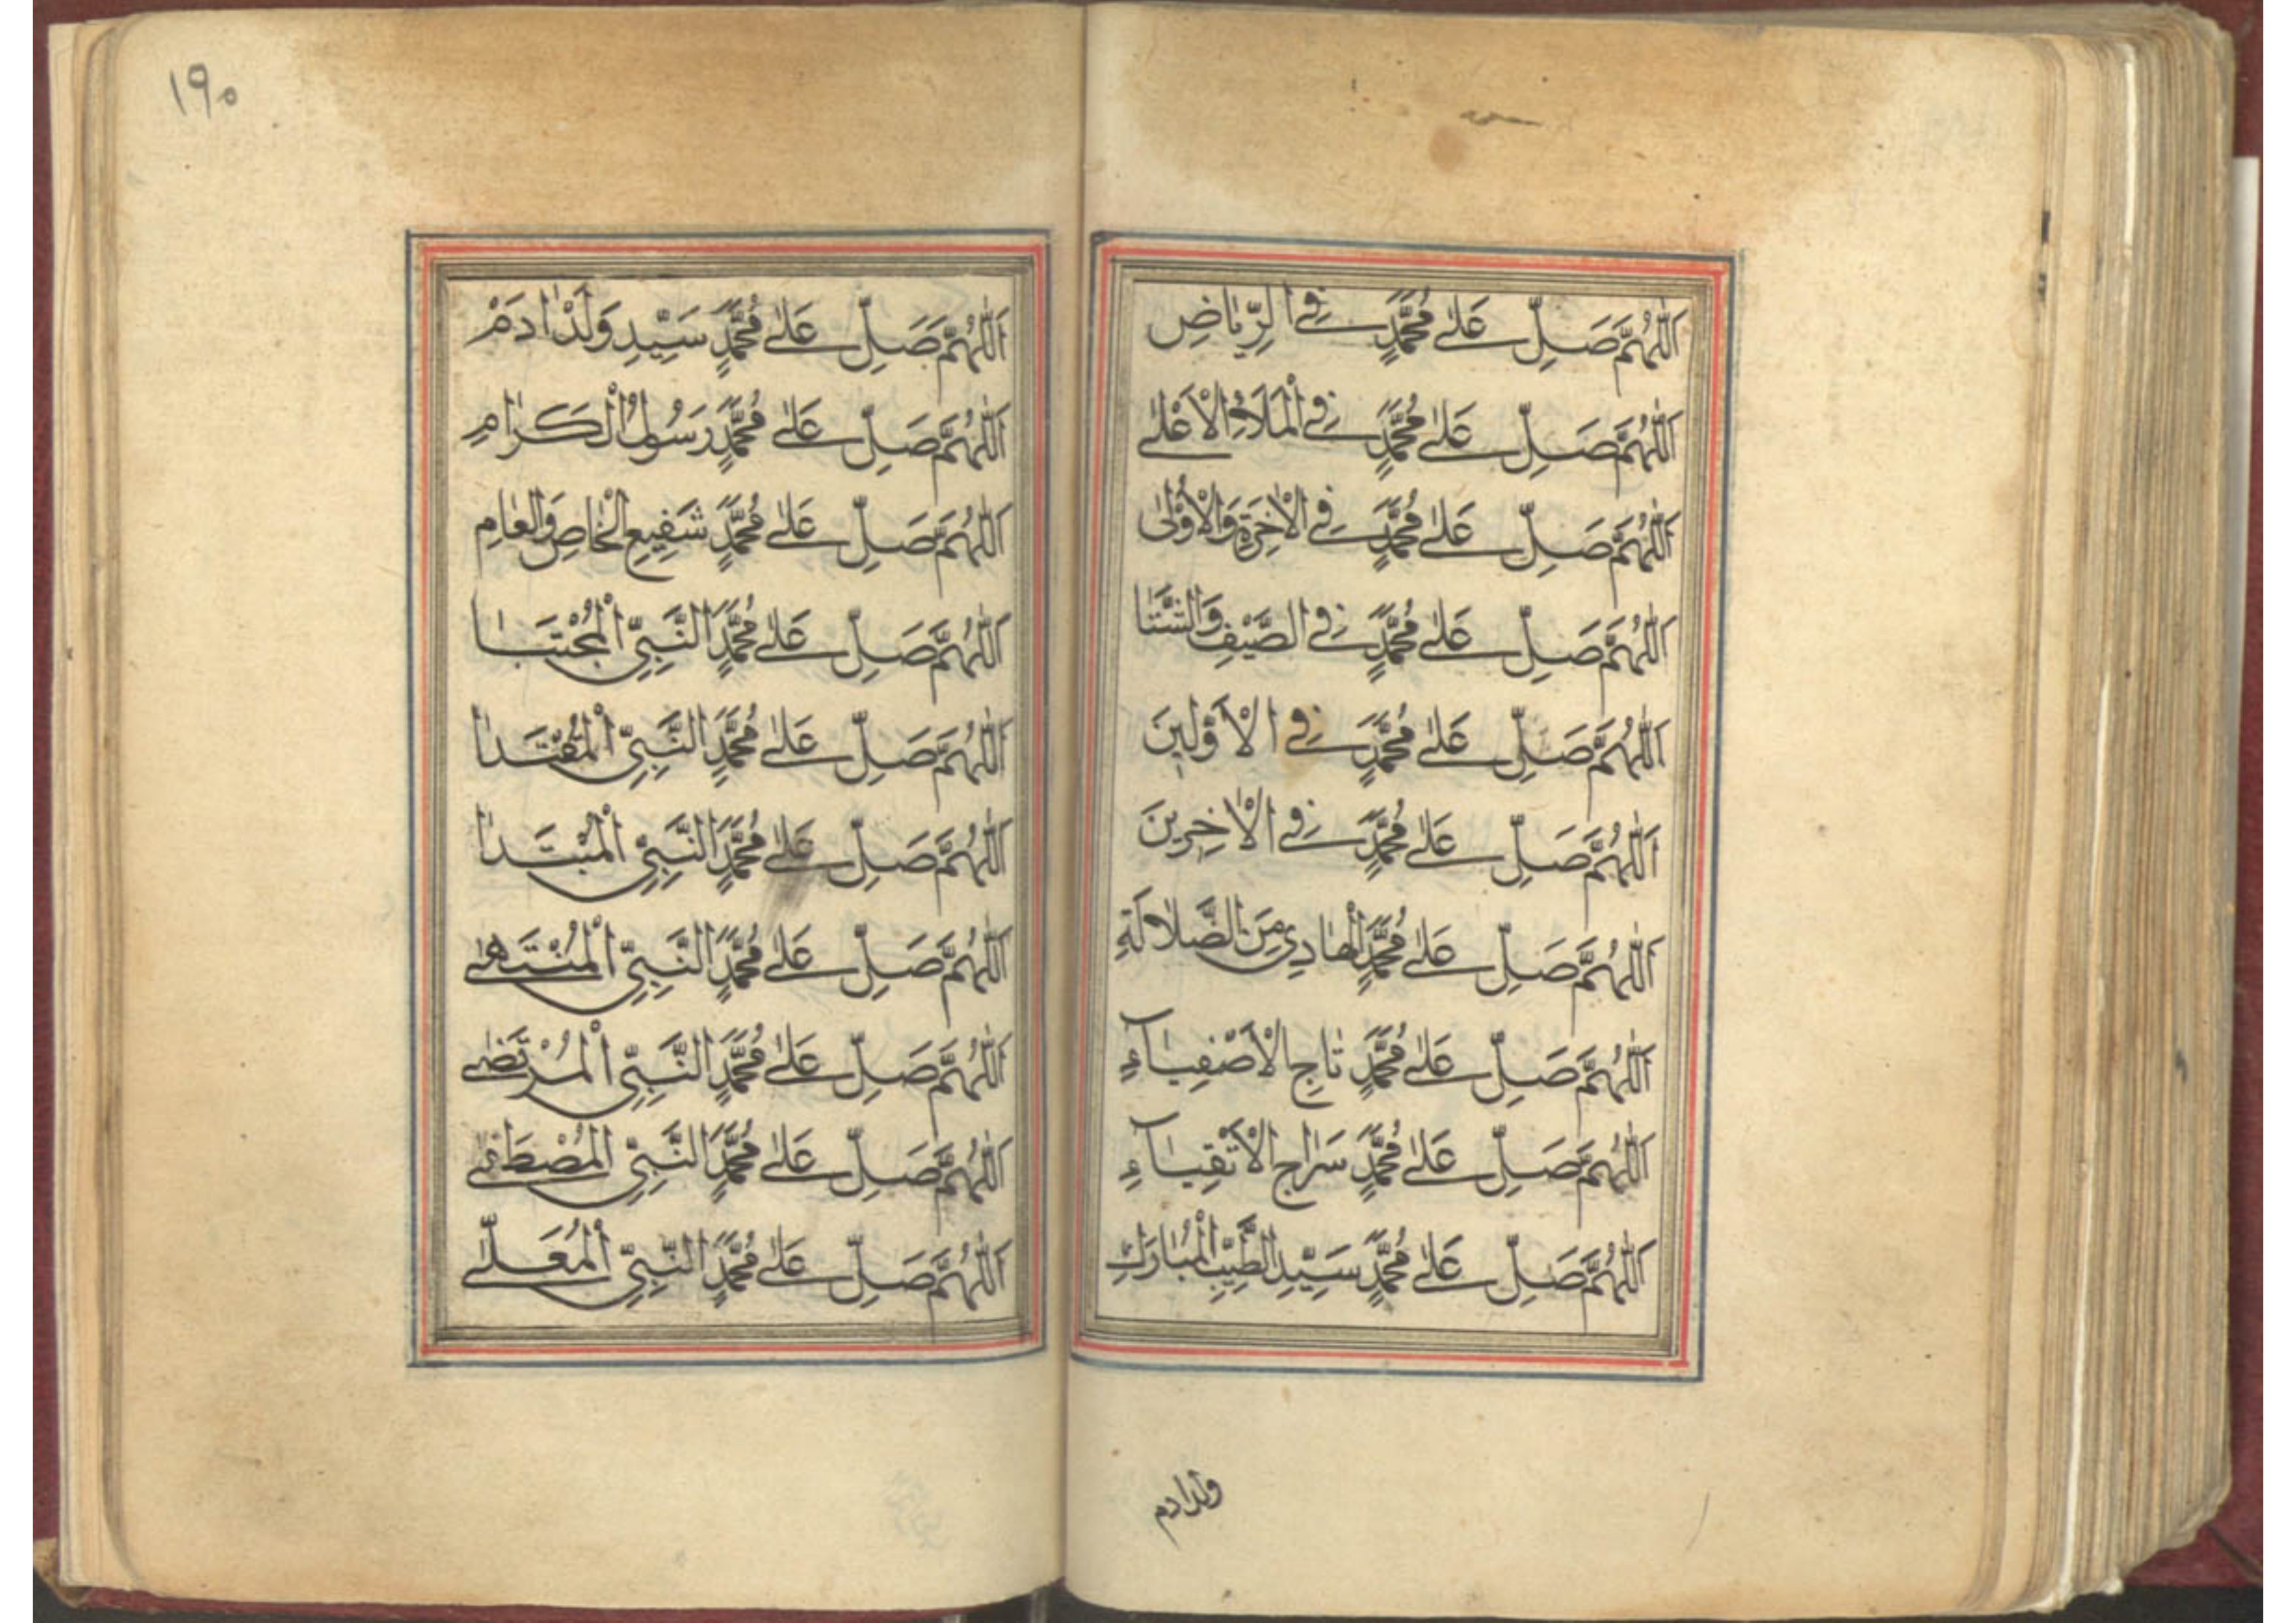 اَللّٰهُمَّ صَلِّ عَلٰے مُحَمَّدٍ فِے الرِّيَاضِ
اَللّٰهُمَّ صَلِّ عَلٰے مُحَمَّدٍ فِے الْمَلَاءِ الْاَعْلٰے
اَللّٰهُمَّ صَلِّ عَلٰے مُحَمَّدٍ فِے الْاٰخِرَةِ وَالْاُوْلٰى
اَللّٰهُمَّ صَلِّ عَلٰے مُحَمَّدٍ فِے الصَّيْفِ وَالشَّتَا
اَللّٰهُمَّ صَلِّ عَلٰے مُحَمَّدٍ فِے الْاَوَّلِينَ
اَللّٰهُمَّ صَلِّ عَلٰے مُحَمَّدٍ فِے الْاٰخِرِينَ
اَللّٰهُمَّ صَلِّ عَلٰے مُحَمَّدٍ الْهَادِي مِنَ الضَّلَالَةِ
اَللّٰهُمَّ صَلِّ عَلٰے مُحَمَّدٍ تَاجِ الْاَصْفِيَآءِ
اَللّٰهُمَّ صَلِّ عَلٰے مُحَمَّدٍ سَرَاجِ الْاَتْقِيَآءِ
اَللّٰهُمَّ صَلِّ عَلٰے مُحَمَّدٍ سَيِّدِ الطَّيِّبِ الْمُبَارَكِ
ولدادم
١٩٠
اَللّٰهُمَّ صَلِّ عَلٰے مُحَمَّدٍ سَيِّدِ وَلَدْ اٰدَمْ
اَللّٰهُمَّ صَلِّ عَلٰے مُحَمَّدٍ رَسُولُ الْكَرَامِ
اَللّٰهُمَّ صَلِّ عَلٰے مُحَمَّدٍ شَفِيعِ الْخَاصِ وَالْعَامِ
اَللّٰهُمَّ صَلِّ عَلٰے مُحَمَّدٍ النَّبِيِّ الْمُجْتَبَا
اَللّٰهُمَّ صَلِّ عَلٰے مُحَمَّدٍ النَّبِيِّ الْمُقْتَدَا
اَللّٰهُمَّ صَلِّ عَلٰے مُحَمَّدٍ النَّبِيِّ الْمُبْتَدَا
اَللّٰهُمَّ صَلِّ عَلٰے مُحَمَّدٍ النَّبِيِّ الْمُنْتَهٰے
اَللّٰهُمَّ صَلِّ عَلٰے مُحَمَّدٍ النَّبِيِّ الْمُرْتَضٰے
اَللّٰهُمَّ صَلِّ عَلٰے مُحَمَّدٍ النَّبِيِّ الْمُصْطَفٰے
اَللّٰهُمَّ صَلِّ عَلٰے مُحَمَّدٍ النَّبِيِّ الْمُعَلّٰے